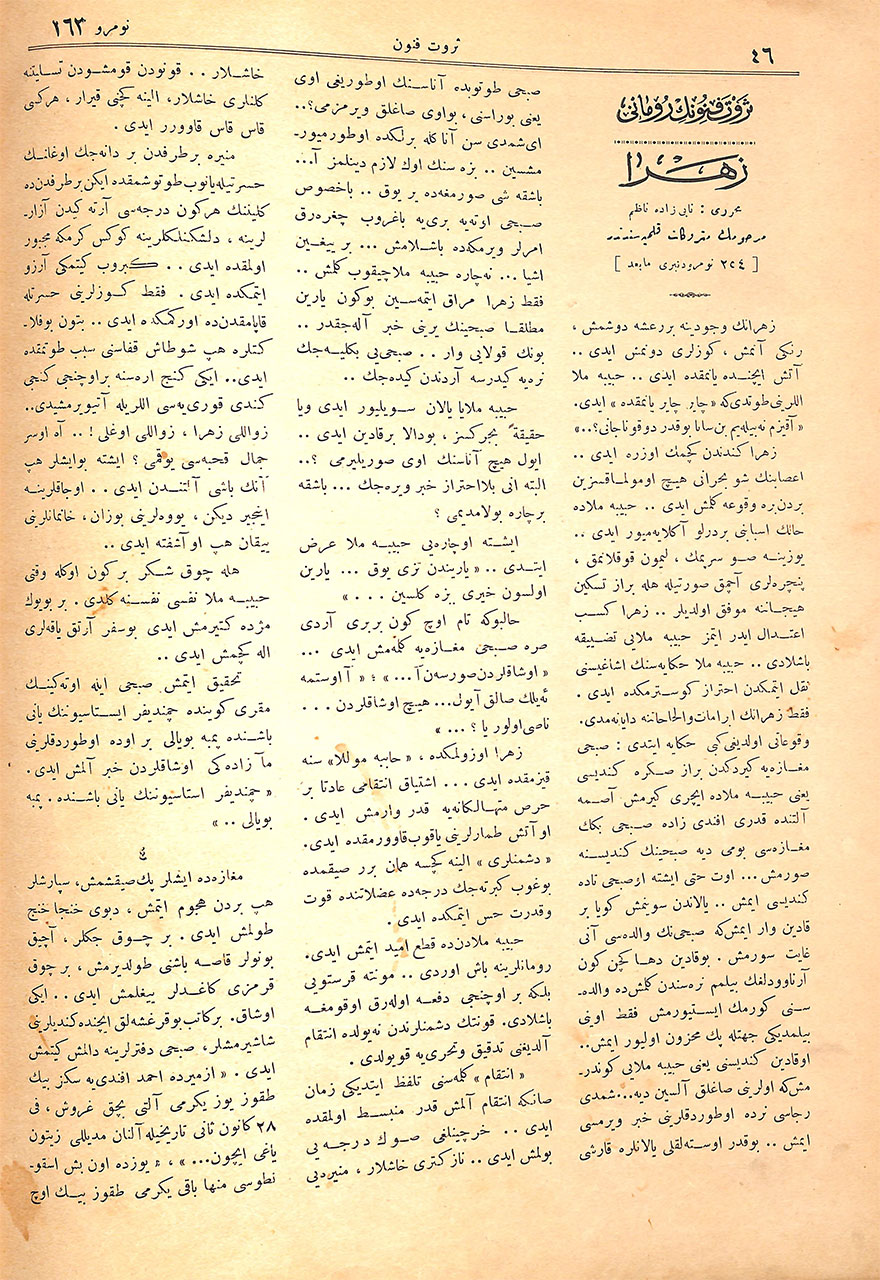 ٤٦
ثروت فنون
نومرو ١٦٣
ثروت فنونك رومانی
زهرا
محرری : نابی زاده ناظم
مرحومك متروكات قلمیه سندندر
[ ٢٢٤ نومرودنبری مابعد ]
زهرانك وجودینه بررعشه دوشمش ،
رنكی آتمش ، كوزلری دونمش ایدی ..
آتش ایچنده یانمقده ایدی .. حبیبه ملا
اللرینی طوتدی كه « چایر چایر یانمقده » ایدی.
« آقیزم نه بیله یم بن سانا بوقدر دوقوناجانی؟..»
زهرا كندندن كچمك اوزره ایدی ..
اعصابنك شو بحرانی هیچ اومولماقسزین
بردن بره وقوعه كلمش ایدی .. حبیبه ملاده
حالك اسبابنی بردرلو آكلایه میور ایدی ..
یوزینه صو سرپمك ، لیمون قوقلاتمق ،
پنجره لری آچمق صورتیله هله براز تسكین
هیجاننه موفق اولدیلر .. زهرا كسب
اعتدال ایدر ایتمز حبیبه ملایی تضییقه
باشلادی .. حبیبه ملا حكایه سنك اشاغیسنی
نقل ایتمكدن احتراز كوسترمكده ایدی .
فقط زهرانك ابرامات والحاحاتنه دایانه مدی.
وقوعاتی اولدیغی كبی حكایه ایتدی : صبحی
مغازه یه كیردكدن براز صكره كندیسی
یعنی حبیبه ملاده ایچری كیرمش آصمه
آلتنده قدری افندی زاده صبحی بكك
مغازه سی بومی دیه صبحینك كندیسنه
صورمش ... اوت حتی ایشته اوصبحی تاده
كندیسی ایمش .. یالاندن سوینمش كویا بر
قادین وار ایمش كه صبحی نك والده سی آنی
غایت سورمش . بوقادین دها كچن كون
آرناوودلغك بیلمم نره سندن كلمش ده والده-
سنی كورمك ایستیورمش فقط اوینی
بیلمدیكی جهتله پك محزون اولیور ایمش..
اوقادین كندیسنی یعنی حبیبه ملایی كوندر-
مش كه اولرینی صاغلق آلسین دیه...شمدی
رجاسی نرده اوطوردقلرینی خبر ویرمسی
ایمش .. بوقدر اوسته لقلی یالانلره قارشی
صبحی طوتوبده آناسنك اوطوریغی اوی
یعنی بوراسنی ، بواوی صاغلق ویرمزمی؟..
ای شمدی سن آناكله برلكده اوطورمیور-
مشسین .. بزه سنك اوك لازم دینلمز آ...
باشقه شی صورمغه ده یر یوق .. باخصوص
صبحی اوته یه بری یه باغروب چغره رق
امرلر ویرمكده باشلامش ... بر ییغین
اشیا ... نه چاره حبیبه ملا چیقوب كلمش ..
فقط زهرا مراق ایتمه سین بوكون یارین
مطلقا صبحینك یرینی خبر آله جقدر ..
بونك قولایی وار . . صبحی یی بكلیه جك
نره یه كیدرسه آردندن كیده جك ..
حبیبه ملایا یالان سویلیور ایدی ویا
حقیقةً بجركسز ، بودالا برقادین ایدی ..
ایول هیچ آناسنك اوی صوریلیرمی ؟..
البته انی بلااحتراز خبر ویره جك ... باشقه
برچاره بولامدیمی ؟
ایشته اوچاره یی حبیبه ملا عرض
ایتدی .. « یاریندن تزی یوق ... یارین
اولسون خیری بزه كلسین . . . »
حالبوكه تام اوچ كون بربری آردی
صره صبحی مغازه یه كلمه مش ایدی ...
« اوشاقلردن صورسه ن آ... » ؛ « آ اوستمه
ئه یلك صالق آیول... هیچ اوشاقلردن . . .
ناصی اولور یا ؟ ... »
زهرا اوزولمكده ، « حابیبه موللا » سنه
قیزمقده ایدی ... اشتیاق انتقامی عادتا بر
حرص متهالكانه یه قدر وارمش ایدی .
او آتش طمارلرینی یاقوب قاوورمقده ایدی.
« دشمنلری » الینه كچسه همان برر صیقمده
بوغوب كبرته جك درجه ده عضلاتنده قوت
وقدرت حس ایتمكده ایدی .
حبیبه ملادن ده قطع امید ایتمش ایدی.
رومانلرینه باش اوردی .. مونته قرستویی
بلكه بر اوچنجی دفعه اوله رق اوقومغه
باشلادی. قونتك دشمنلرندن نه یولده انتقام
آلدیغنی تدقیق وتحری یه قویولدی .
« انتقام » كله سنی تلفظ ایتدیكی زمان
صانكه انتقام آلمش قدر منبسط اولمقده
ایدی .. خرچینلغی صوك درجه یی
بولمش ایدی .. نازكتری خاشلار ، منیره یی
خاشلار .. قونودن قومشودن تسلیتنه
كلنلری خاشلار، الینه كچنی قیرار ، هركسی
قاس قاس قاوورر ایدی .
منیره برطرفدن بر دانه جك اوغلنك
حسرتیله یانوب طوتوشمقده ایكن برطرفدن ده
كلیننك هركون درجه سی آرته كیدن آزار-
لرینه ، دلشكنلكلرینه كوكس كرمكه مجبور
اولمقده ایدی .. كبروب كیتمكی آرزو
ایتمكده ایدی . فقط كوزلرینی حسرتله
قاپامقدن ده اوركمكده ایدی .. بتون بوفلا-
كتلره هپ شوطاش قفاسنی سبب طوتمقده
ایدی.. ایكی كنج اره سنه براوچنجی كنجی
كندی قوریه سی اللریله آتیویرمشیدی..
زواللی زهرا ، زواللی اوغلی ! .. آه اوسر
جمال قحبه سی یوقمی ؟ ایشته بوایشلر هپ
آنك باشی آلتندن ایدی . . اوجاقلرینه
اینجیر دیكن ، یووه لرینی بوزان ، خانمانلرینی
ییقان هپ او آشفته ایدی ..
هله چوق شكر بر كون اوكله وقتی
حبیبه ملا نفسی نفسنه كلدی . بر بویوك
مژده كتیرمش ایدی بوسفر آرتق یافه لری
اله كچمش ایدی ..
تحقیق ایتمش صبحی ایله اوته كینك
مقری كوینده چمندیفر ایستاسیوننك یانی
باشنده پمبه بویالی بر اوده اوطوردقلرینی
مآزاده كی اوشاقلردن خبر آلمش ایدی.
« چمندیفر استاسیوننك یانی باشنده . پمبه
بویالی .. »
مغازه ده ایشلر پك صیقیشمش، سپارشلر
هپ بردن هجوم ایتمش ، دپوی خنجاخنج
طولمش ایدی . بر چوق چكلر ، آچیق
بونولر قاصه باشنی طولدیرمش ، بر چوق
قرمزی كاغدلر ییغلمش ایدی .. ایكی
اوشاق. بركاتب بوقرغشه لق ایچنده كندیلرینی
شاشیرمشلر، صبحی دفترلرینه دالمش كیتمش
ایدی . « ازمیرده احمد افندی یه سكز بیك
طقوز یوز یكرمی آلتی بچق غروش ، فی
٢٨ كانون ثانی تاریخیله آلنان مدیللی زیتون
یاغی ایچون... » ، « یوزده اون بش اسقو-
نطوسی منها باقی یكرمی طقوز بیك اوچ